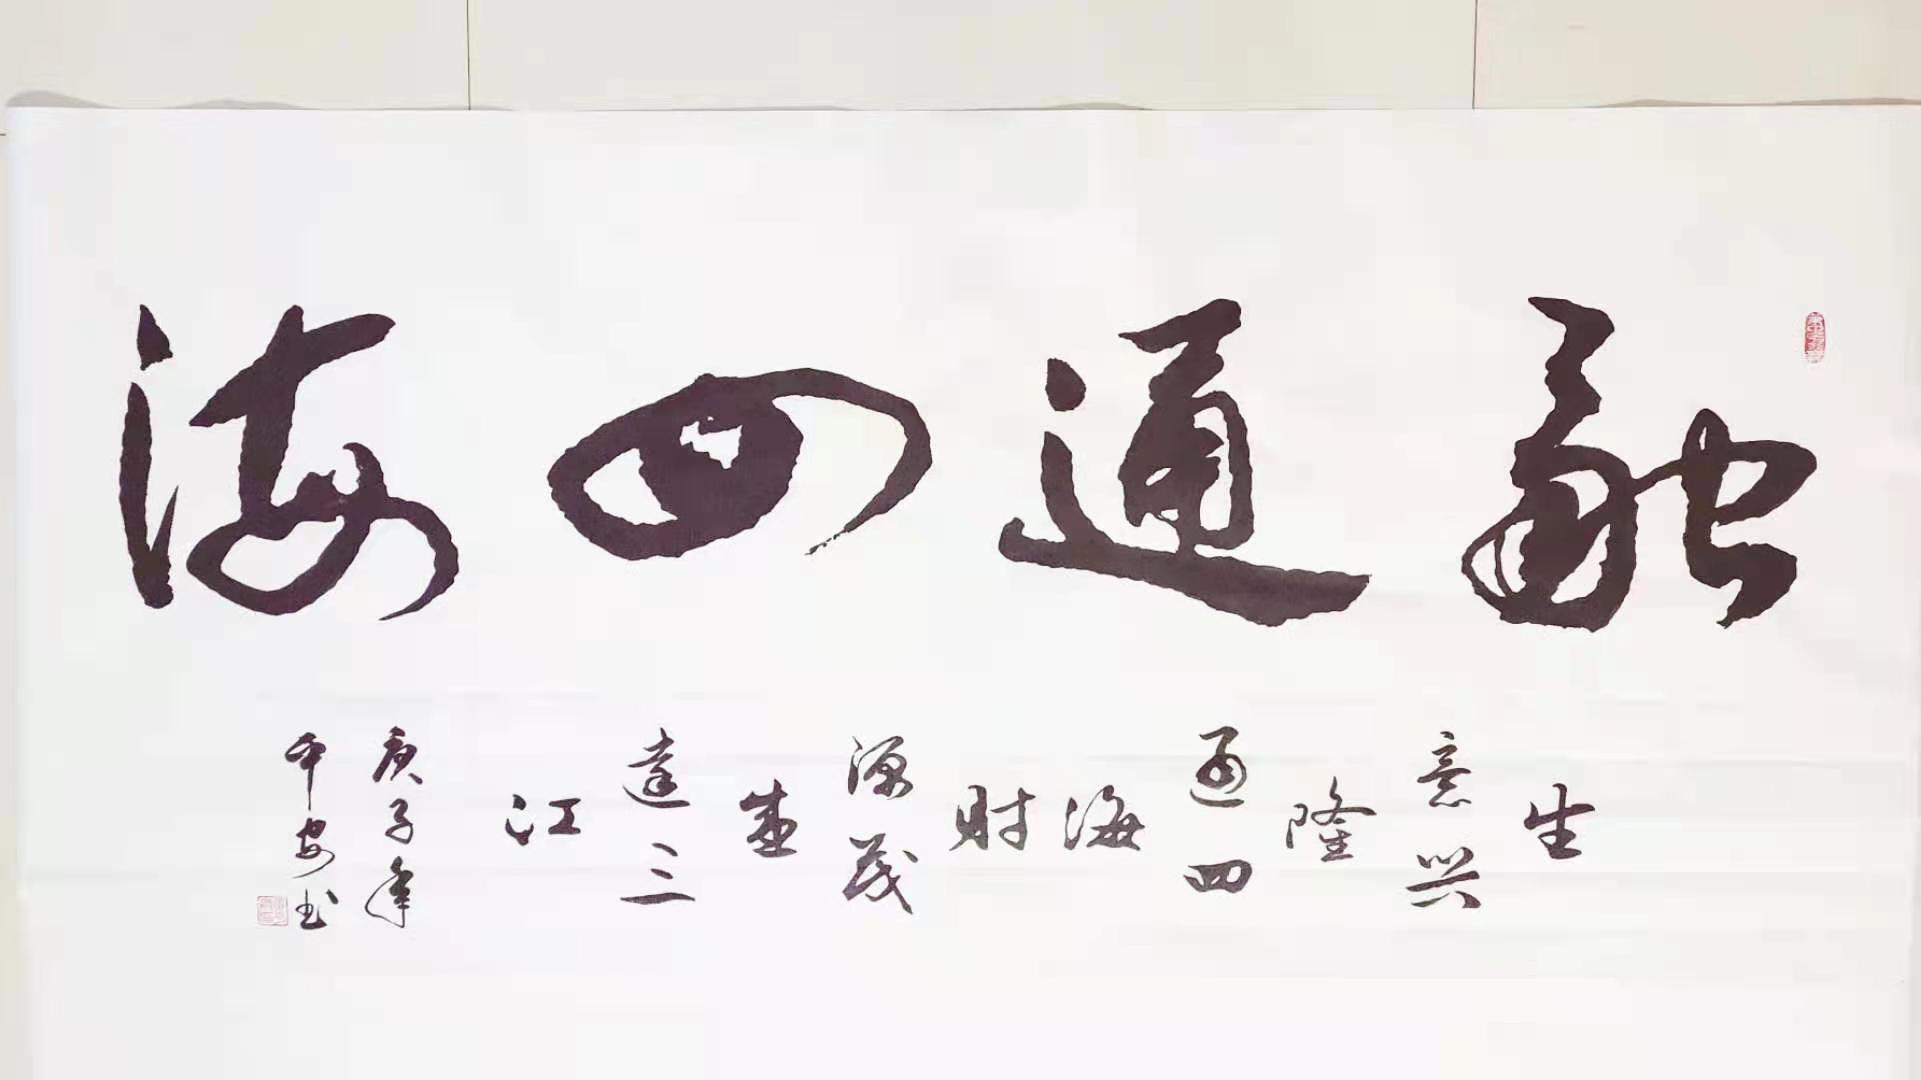 融通四海
生意兴隆通四海财源茂盛達三江
庚子年
安书